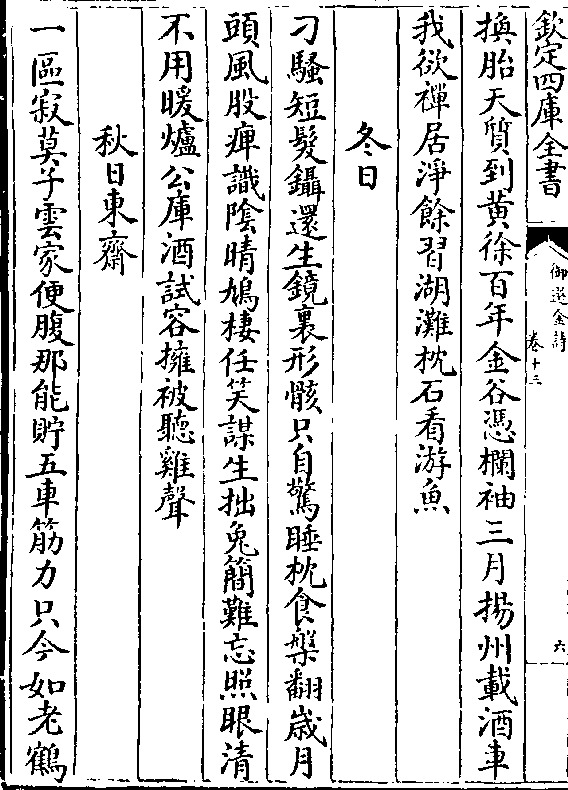 欽定四庫全書
御選金詩
卷十三
六
換胎天質到黃徐百年金谷憑欄袖三月揚州載酒車
我欲禪居淨餘習湖灘枕石看游魚
冬日
刁騷短髮鑷還生鏡裏形骸只自驚睡枕食槃翻歳月
頭風股痺識陰晴鳩棲任笑謀生拙兔簡難忘照眼清
不用暖爐公庫酒試容擁被聽雞聲
秋日東齋
一區寂莫子雲家便腹那能貯五車筋力只今如老鶴